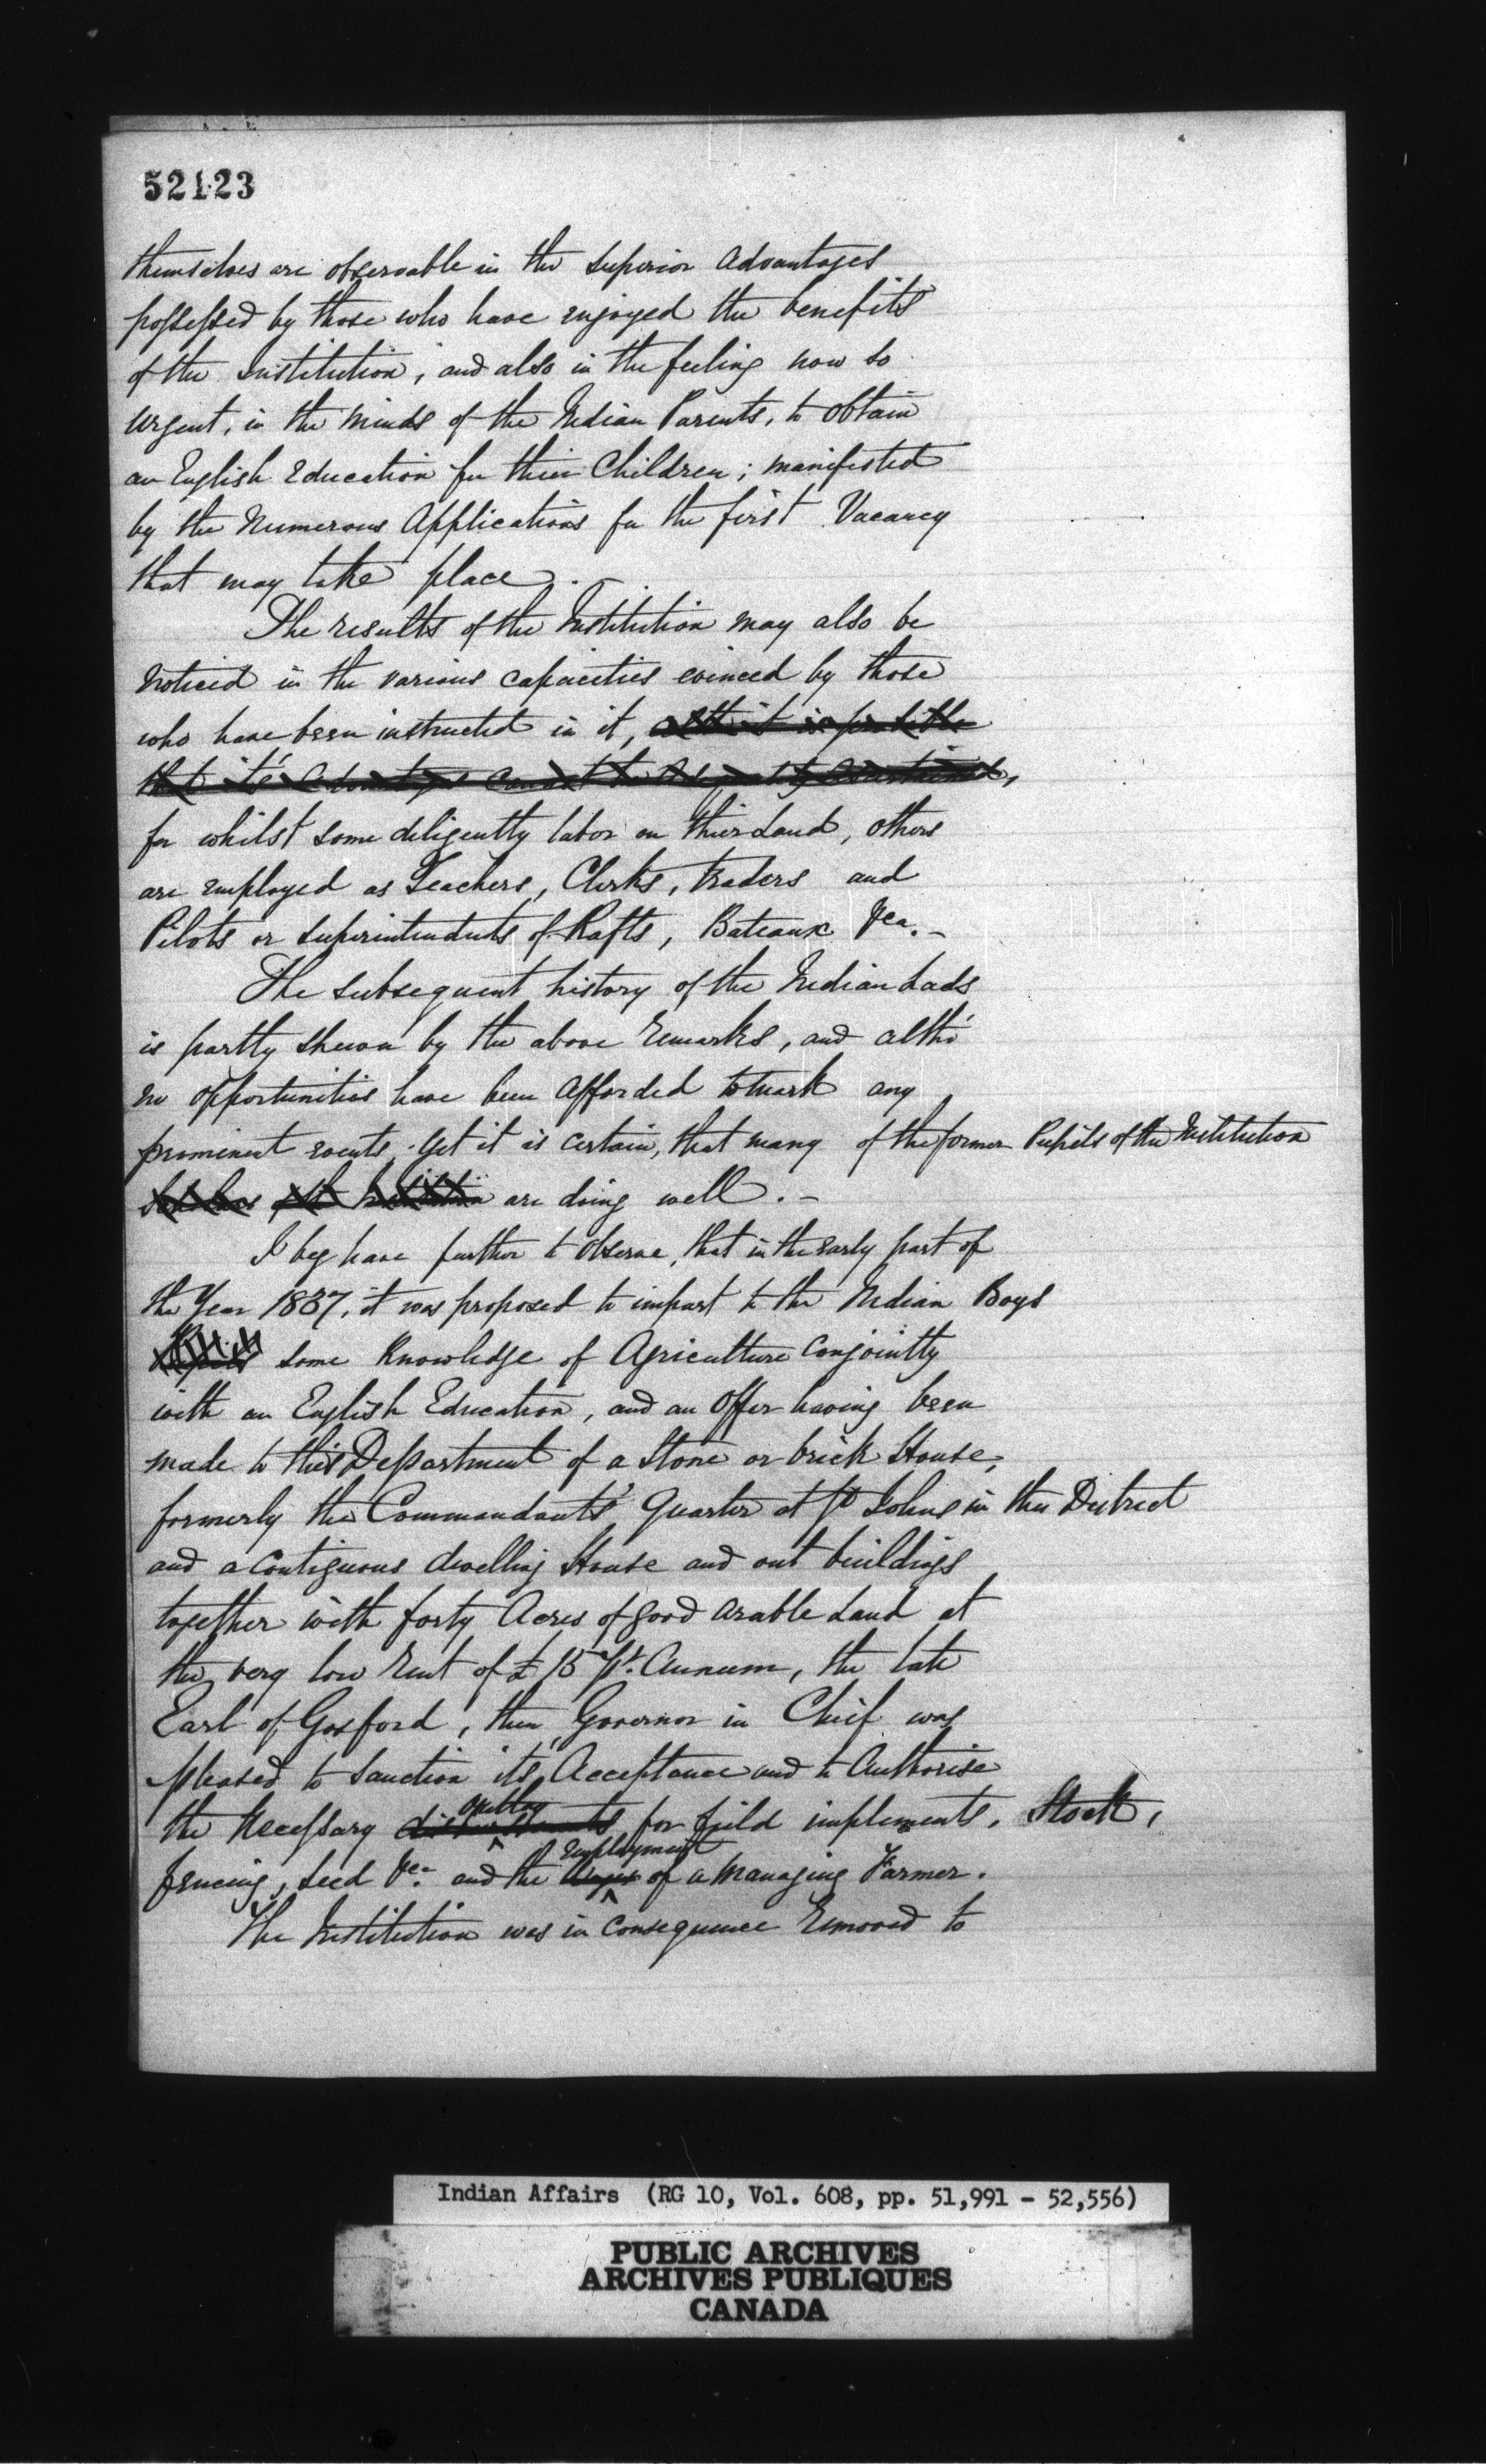 52123
themselves are observable in the superior Advantages
possessed by those who have enjoyed the benefits
of the Institution; and also in the feeling now so
urgent, in the minds of the Indian Parents, to obtain
an English Education for their Children; manifested
by the numerous Applications for the first Vacancy
that may take place.
The results of the Institution may also be
noticed in the various capacities evinced by those
who have been instructed in it, altho' it is probable
that its' Advantages cannot be
for whilst some diligently labor on their Land, others
are employed as Teachers, Clerks, traders and
Pilots or Superintendents of Rafts, Bateaux &ca. -
The subsequent history of the Indian Lads
is partly shewn by the above remarks, and altho'
no opportunities have been afforded to mark any
prominent events, yet it is certain, that many of the former Pupils of the Institution
of the Institution are doing well. -
I beg have further to observe, that in the early part of
the Year 1837, it was proposed to impart to the Indian Boys
some Knowledge of Agriculture conjointly
with an English Education, and an offer having been
made to this Department of a stone or brick House,
formerly the Commandants' Quarter at St Johns in this District
and a contiguous dwelling House and out buildings
together with forty Acres of good arable Land at
the very low rent of £15 pr. Annum, the late
Earl of Gosford, then Governor in Chief was
pleased to sanction its' Acceptance and to Authorise
outlay
the necessary disbursements for field implements, Stock,
Employment
fencing, seed &ca. and the Wages of a managing Farmer.
The Institution was in consequence removed to
Indian Affairs (RG 10, Vol. 608, pp. 51,991 - 52,556)
PUBLIC ARCHIVES
ARCHIVES PUBLIQUES
CANADA